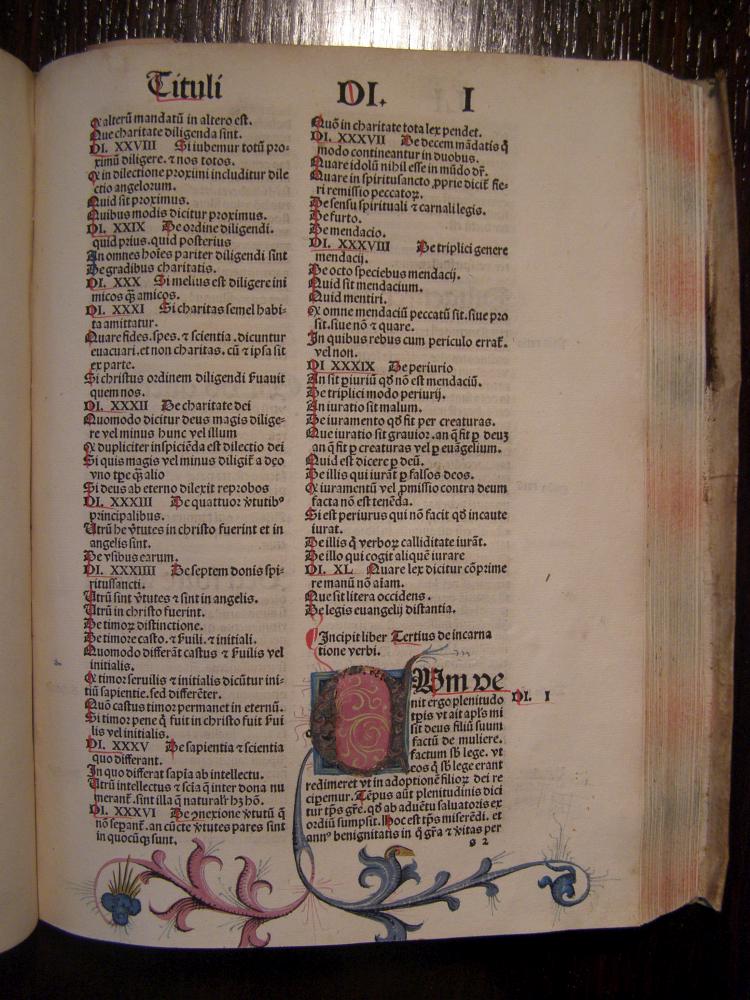 Tituli DI. I
Qx alterū mandatū in altero est.
Que charitate diligenda sint.
DI. XXVIII Si iubemur totū pro⸗
ximū diligere. ⁊ nos totos.
Qx in dilectione proximi includitur dile
ctio angelorum.
Quid sit proximus.
Quibus modis dicitur proximus.
DI. XXIX De ordine diligendi.
quid prius. quid posterius
An omnes hoīes pariter diligendi sint
De gradibus charitatis.
DI. XXX Si melius est diligere ini
micos qꝫ̄ amicos.
DI. XXXI Si charitas semel habi⸗
ta amittatur.
Quare fides. spes. ⁊ scientia. dicuntur
euacuari. et non charitas. cū ⁊ ipsa sit
ex parte.
Si christus ordinem diligendi ẜuauit
quem nos.
DI. XXXII De charitate dei
Quomodo dicitur deus magis dilige⸗
re vel minus hunc vel illum
Qx dupliciter inspiciēda est dilectio dei
Si quis magis vel minus diligit̄ a deo
vno tꝑe qꝫ̄ alio
Si deus ab eterno dilexit reprobos
DI. XXXIII De quattuor v̓tutibꝰ
principalibus.
Utrū he v̓tutes in christo fuerint et in
angelis sint.
De vsibus earum.
DI. XXXIIII De septem donis spi⸗
ritussancti.
Utrū sint v̓tutes ⁊ sint in angelis.
Utrū in christo fuerint.
De timoꝝ distinctione.
De timore casto. ⁊ ẜuili. ⁊ initiali.
Quomodo differāt castus ⁊ ẜuilis vel
initialis.
Qx timor seruilis ⁊ initialis dicūtur ini⸗
tiū sapientie. sed differēter.
Quō castus timor permanet in eternū.
Si timor pene q̄ fuit in christo fuit ẜui
lis vel initialis.
DI. XXXV De sapientia ⁊ scientia
quo differant.
In quo differat sapīa ab intellectu.
Utrū intellectus ⁊ scīa q̄ inter dona nu
merant̄. sint illa q̄ naturalr̄ hꝫ hō.
DI. XXXVI De ꝯnexione v̓tutū q̄
nō sepant̄. an cūcte v̓tutes pares sint
in quocūqꝫ sunt.
Quō in charitate tota lex pendet.
DI. XXXVII De decem mādatis q̄
modo contineantur in duobus.
Quare idolū nihil esse in mūdo dr̄.
Quare in spiritusancto ꝓprie dicit̄ fie⸗
ri remissio peccatoꝝ.
De sensu spirituali ⁊ carnali legis.
De furto.
De mendacio.
DI. XXXVIII De triplici genere
mendacij.
De octo speciebus mendacij.
Quid sit mendacium.
Quid mentiri.
Qx omne mendaciū peccatū sit. siue pro
sit. siue nō ⁊ quare.
In quibus rebus cum periculo errat̄.
vel non.
DI XXXIX De periurio
An sit ꝑiuriū qđ nō est mendaciū.
De triplici modo periurij.
An iuratio sit malum.
De iuramento qđ fit per creaturas.
Que iuratio sit grauior. an q̄ fit ꝑ deuꝫ
an q̄ fit ꝑ creaturas vel ꝑ euāgelium.
Quid est dicere ꝑ deū.
De illis qui iurāt ꝑ falsos deos.
Qx iuramentū vel ꝓmissio contra deum
facta nō est tenēda.
Si est periurus qui nō facit qđ incaute
iurat.
De illis q̄ verboꝝ calliditate iurāt.
De illo qui cogit aliquē iurare
DI. XL Quare lex dicitur cōprime
re manū nō aīam.
Que sit litera occidens.
De legis euangelij distantia.
Incipit liber Tertius de incarna
tione verbi.
CUm ve
nit ergo plenitudo
tꝑis vt ait apl̄s mi
sit deus filiū suum
factū de muliere.
factum sb̄ lege. vt
eos q̄ sb̄ lege erant
redimeret vt in adoptionē filioꝝ dei re
ciperemur. Tēpus aūt plenitudinis dici
tur tꝑs gr̄e. qđ ab aduētu saluatoris ex
ordiū sumpsit. Hoc est tꝑs miserēdi. et
annꝰ benignitatis in q̄ gr̄a ⁊ v̓itas per
DI. I